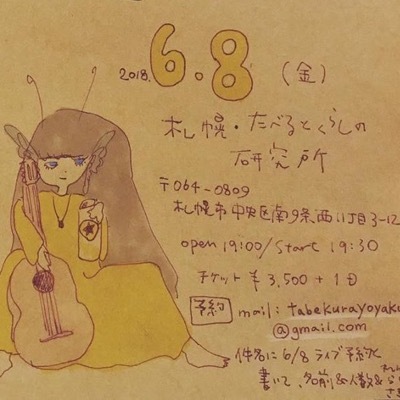 2018. 6.8 (金)
札幌・たべるとくらしの
研究所
〒064-0809
札幌市中央区南9条西11丁目3-12
open 19:00/Start 19:30
チケット ¥3,500 + 1D
予約 mail: tabekurayoyaku
@gmail.com
件名に 6/8 ライブ予約と
書いて、名前&人数&